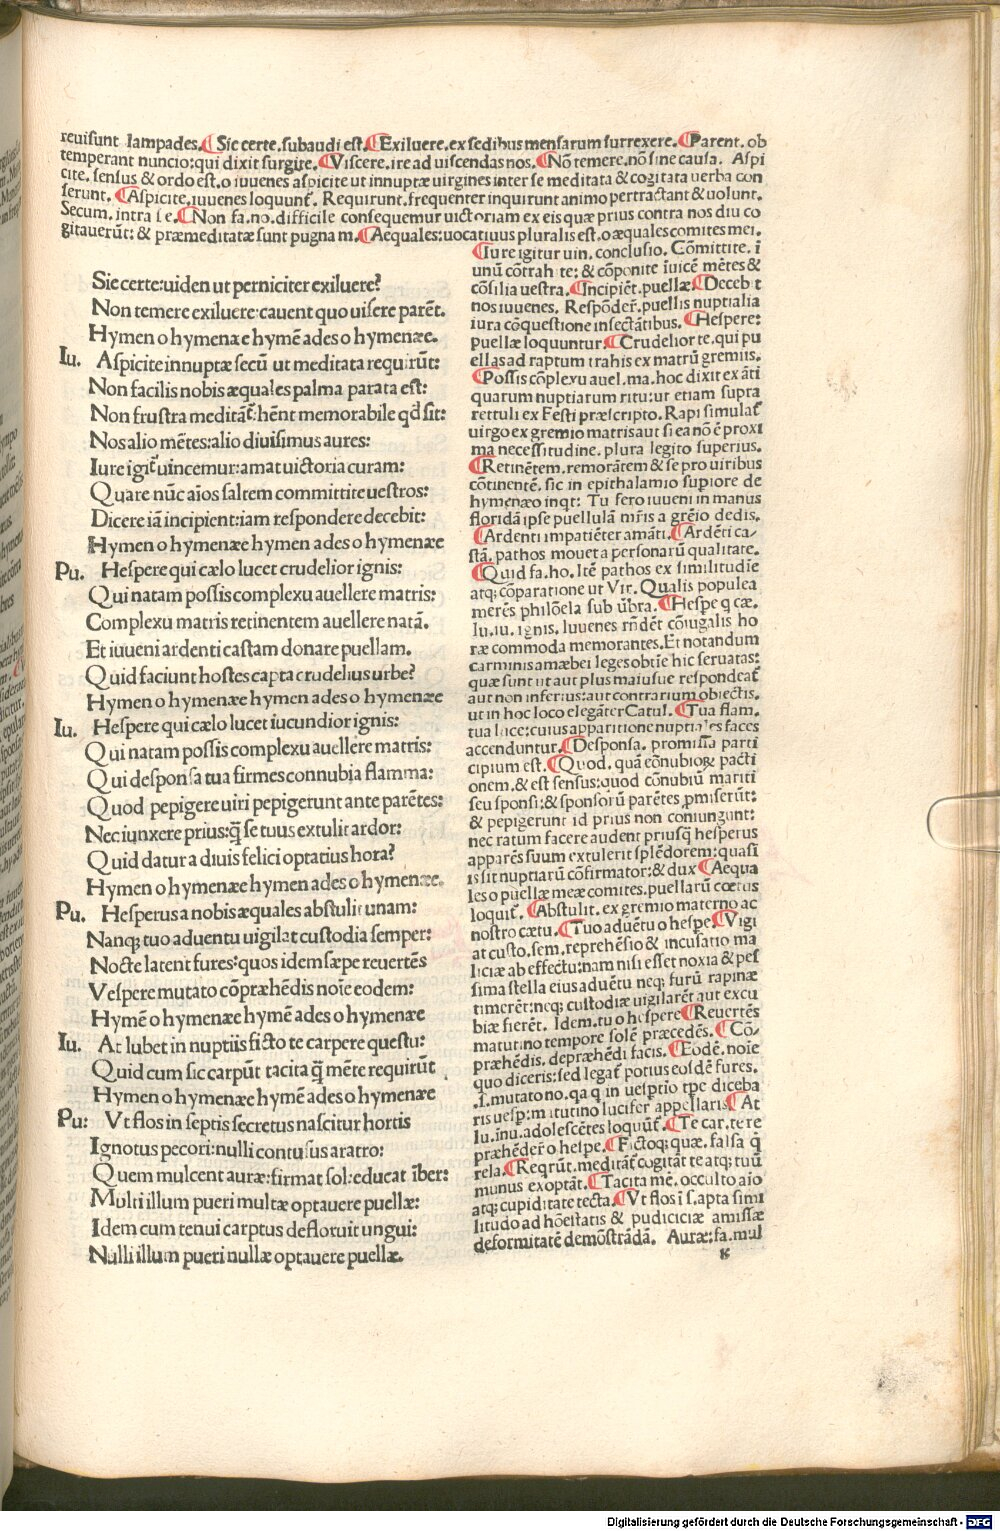 reuisunt lampades. ¶ Sic certe. subaudi est. ¶ Exiluere. ex sedibus mensarum surrexere. ¶ Parent. ob
temperant nuncio: qui dixit surgite. ¶ Viscere. ire ad uiscendas nos. ¶ Nõ temere. nõ sine causa. Aspi
cite. sensus & ordo est. o iuuenes aspicite ut innuptæ uirgines inter se meditata & cogitata uerba con
serunt. ¶ Aspicite. iuuenes loquunt̃. Requirunt. frequenter inquirunt animo pertractant & uolunt.
Secum. intra se. ¶ Non fa. no. difficile consequemur uictoriam ex eis quæ prius contra nos diu co
gitauerũt: & præmeditatæ sunt pugnam. ¶ Aequales: uocatiuus pluralis est. o æquales comites mei.
Sic certe: uiden ut perniciter exiluere?
Non temere exiluere: cauent quo uisere parẽt.
Hymen o hymenæe hymẽ ades o hymenæe.
Iu. Aspicite innuptæ secũ ut meditata requirũt:
Non facilis nobis æquales palma parata est:
Non frustra meditãt̃: hẽnt memorabile qđ sit:
Nos alio mẽtes: alio diuisimus aures:
Iure igit̃ uincemur: amat uictoria curam:
Quare nũc aĩos saltem committite uestros:
Dicere iã incipient: iam respondere decebit:
Hymen o hymenæe hymen ades o hymenæe
Pu. Hespere qui cælo lucet crudelior ignis:
Qui natam possis complexu auellere matris:
Complexu matris retinentem auellere natã.
Et iuueni ardenti castam donare puellam.
Quid faciunt hostes capta crudelius urbe?
Hymen o hymenæe hymen ades o hymenæe
Iu. Hespere qui cælo lucet iucundior ignis:
Qui natam possis complexu auellere matris:
Qui desponsa tua firmes connubia flamma:
Quod pepigere uiri pepigerunt ante parẽtes:
Nec iunxere prius: q̃ se tuus extulit ardor:
Quid datur a diuis felici optatius hora?
Hymen o hymenæe hymen ades o hymenæe.
Pu. Hesperus a nobis æquales abstulit unam:
Nanq; tuo aduentu uigilat custodia semper:
Nocte latent fures: quos idem sæpe reuertẽs
Vespere mutato cõpræhẽdis noĩe eodem:
Hymẽ o hymenæe hymẽ ades o hymenæe
Iu. At lubet in nuptiis ficto te carpere questu:
Quid cum sic carpũt tacita q̃ mẽte requirũt
Hymen o hymenæe hymẽ ades o hymenæe
Pu: Vt flos in septis secretus nascitur hortis
Ignotus pecori: nulli contusus aratro:
Quem mulcent auræ: firmat sol: educat ĩber:
Multi illum pueri multæ optauere puellæ:
Idem cum tenui carptus defloruit ungui:
Nulli illum pueri nullæ optauere puellæ.
¶ Iure igitur uin. conclusio. Cõmittite. ĩ
unũ cõtrahite: & cõponite ĩuicẽ mẽtes &
cõsilia uestra. ¶ Incipiẽt. puellæ. ¶ Decebit
nos iuuenes. Respõder̃. puellis nuptialia
iura cõquestione insectãtibus. ¶ Hespere:
puellæ loquuntur. ¶ Crudelior te. qui pu
ellas ad raptum trahis ex matrũ gremiis.
¶ Possis cõplexu auel. ma. hoc dixit ex ãti
quarum nuptiarum ritu: ut etiam supra
rettuli ex Festi præscripto. Rapi simulat̃
uirgo ex gremio matris aut si ea nõ ẽ proxi
ma necessitudine. plura legito superius.
¶ Retinẽtem. remorãtem & se pro uiribus
cõtinentẽ. sic in epithalamio supiore de
hymenæo inqt: Tu fero iuueni in manus
floridã ipse puellulã mr̃is a grẽio dedis.
¶ Ardenti impatiẽter amãti. ¶ Ardẽti ca-
stã. pathos mouet a personarũ qualitate.
¶ Quid fa. ho. Itẽ pathos ex similitudĩe
atq; cõparatione ut Vir. Qualis populea
merẽs philõela sub ũbra. ¶ Hespe q cæ.
lu. iu. ignis. Iuuenes rñdẽt cõiugalis ho
ræ commoda memorantes. Et notandum
carminis amæbei leges obtĩe hic seruatas:
quæ sunt ut aut plus maiusue respondeat̃
aut non inferius: aut contrarium obiectis.
ut in hoc loco elegãter Catul. ¶ Tua flam.
tua luce: cuius apparitione nuptiales faces
accenduntur. ¶ Desponsa. promissa parti
cipium est. ¶ Quod. quã cõnubiorꝫ pacti
onem. & est sensus: quod cõnubiũ mariti
seu sponsi: & sponsorũ parẽtes pmiserũt:
& pepigerunt id prius non coniungunt:
nec ratum facere audent priusq̃ hesperus
apparẽs suum extulerit splẽdorem: quasi
is sit nuptiarũ cõfirmator: & dux ¶ Aequa
les o puellæ meæ comites. puellarũ cœtus
loquit̃. ¶ Abstulit. ex gremio materno ac
nostro cætu. ¶ Tuo aduẽtu o hespe. ¶ Vigi
at custo. sem. reprehẽsio & incusatio ma
liciæ ab effectu: nam nisi esset noxia & pes
sima stella eius aduẽtu neq; furũ rapinæ
timerẽt: neq; custodiæ uigilarẽt aut excu
biæ fierẽt. Idem. tu o hespere ¶ Reuertẽs
matutino tempore solẽ præcedẽs. ¶ Cõ-
præhẽdis. depræhẽdi facis. ¶ Eodẽ. noĩe
quo diceris: sed legat̃ potius eosdẽ fures.
.s. mutato no. qa q in uesptio tpe diceba
ris uesp: matutino lucifer appellaris ¶ At
lu. inu. adolescẽtes loquũt̃. ¶ Te car. te re
præhẽder̃ o hespe. ¶ Fictoq; quæ. falsa q̃
rela. ¶ Reqrũt. meditãt̃ cogitãt te atq; tuũ
munus exoptãt. ¶ Tacita mẽ. occulto aĩo
atq; cupiditate tecta. ¶ Vt flos ĩ s. apta simi
litudo ad hõestatis & pudiciciæ amissæ
deformitatẽ demõstrãdã. Auræ: fa. mul
k
Digitalisierung gefördert durch die Deutsche Forschungsgemeinschaft - DFG